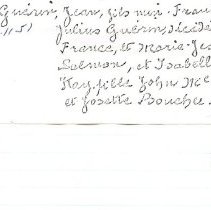 Guérin, Jean, fils min. Fran
115) Julius Guérin, décédé
France, et Marie-Je
Salmon, et Isabell
Hay, fille John Mc
et Josette Bouchee.